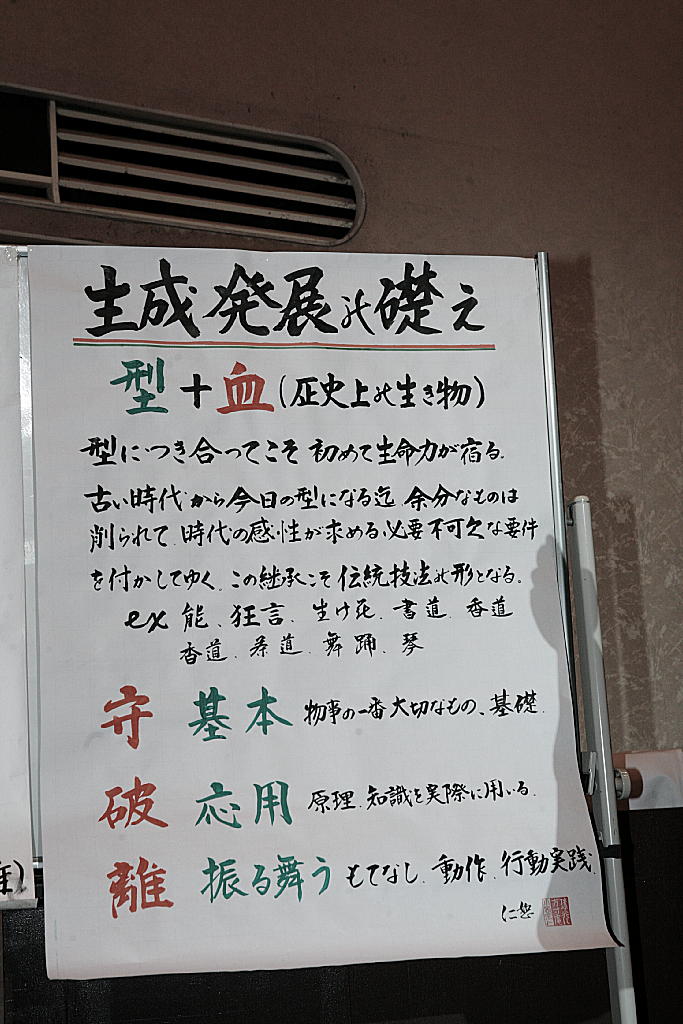 生成発展の礎え
型+血(歴史上の生き物)
型につき合ってこそ 初めて生命力が宿る.
古い時代から今日の型になる迄 余分なものは
削られて.時代の感性が求める必要不可欠な要件
を付かしてゆく.この継承こそ伝統技法の形となる.
ex 能、狂言.生け花.書道.香道
香道.茶道.舞踊.琴
守 基本 物事の一番大切なもの、基礎.
破 応用 原理.知識を実際に用いる.
離 振る舞う もてなし.動作.行動実践.